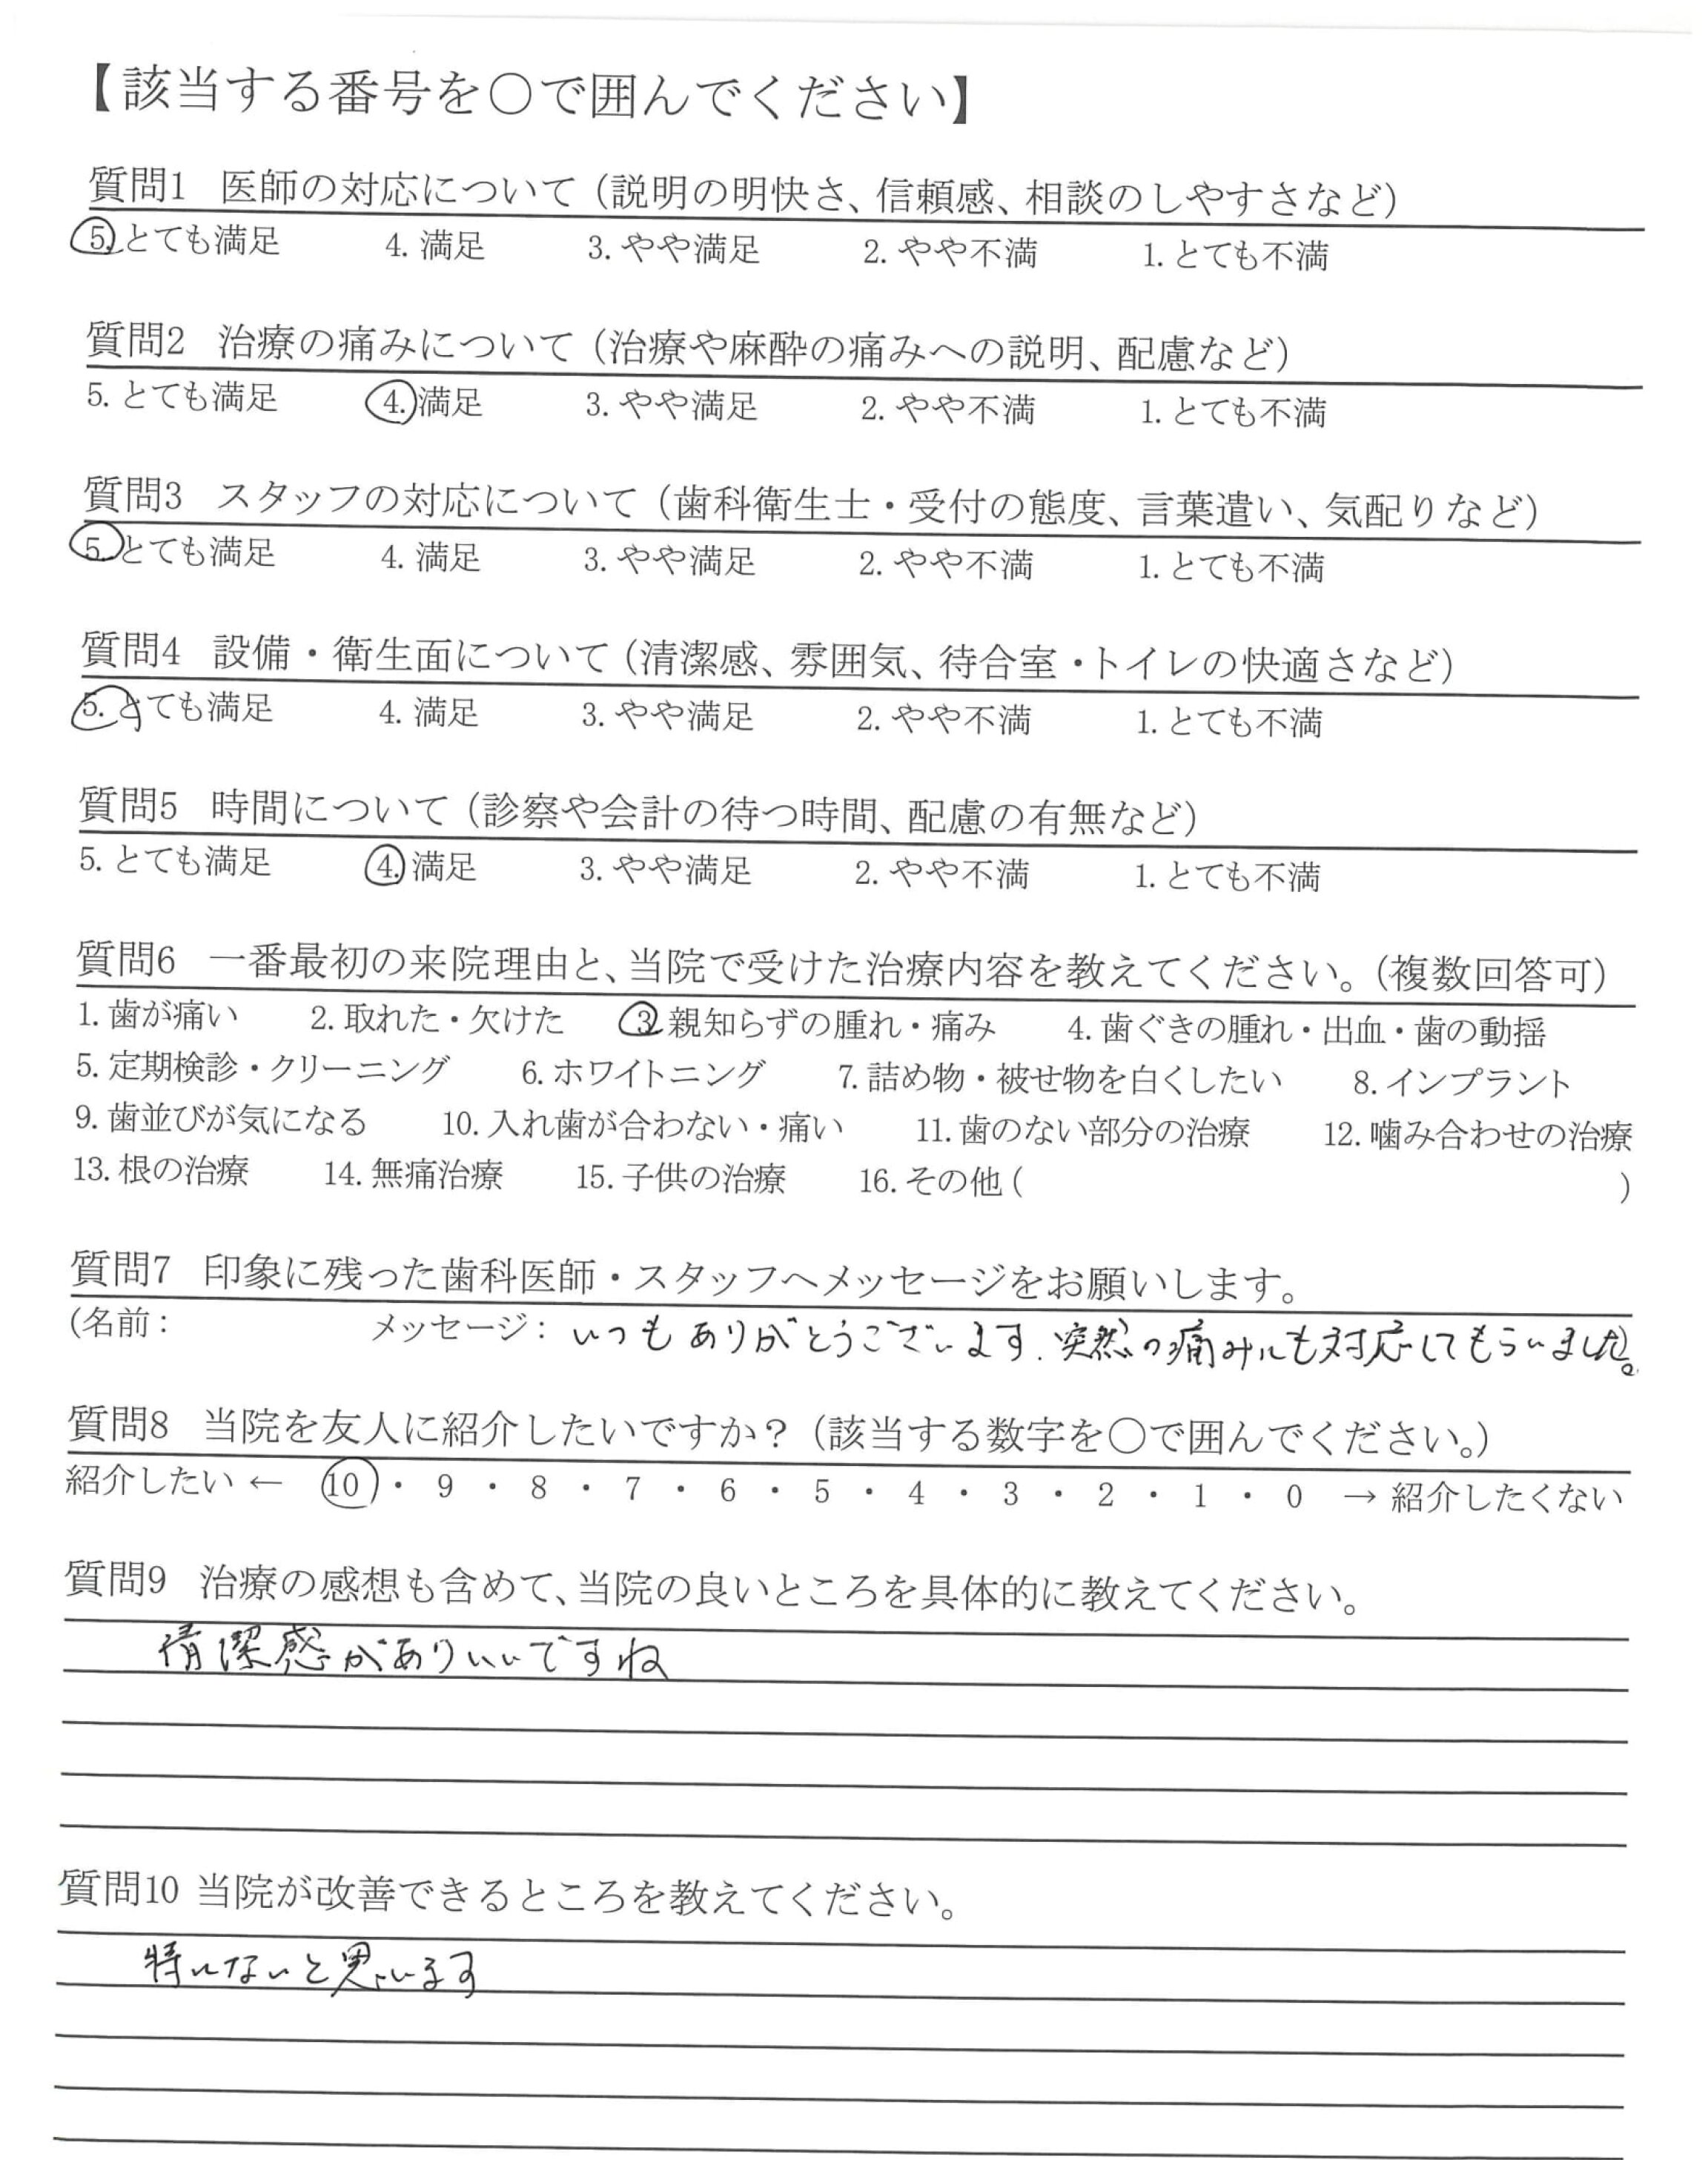 【該当する番号を○で囲んでください】
質問1 医師の対応について（説明の明快さ、信頼感、相談のしやすさなど）
5. とても満足 4. 満足 3. やや満足 2. やや不満 1. とても不満
質問2 治療の痛みについて（治療や麻酔の痛みへの説明、配慮など）
5. とても満足 4. 満足 3. やや満足 2. やや不満 1. とても不満
質問3 スタッフの対応について（歯科衛生士・受付の態度、言葉遣い、気配りなど）
5. とても満足 4. 満足 3. やや満足 2. やや不満 1. とても不満
質問4 設備・衛生面について（清潔感、雰囲気、待合室・トイレの快適さなど）
5. とても満足 4. 満足 3. やや満足 2. やや不満 1. とても不満
質問5 時間について（診察や会計の待つ時間、配慮の有無など）
5. とても満足 4. 満足 3. やや満足 2. やや不満 1. とても不満
質問6 一番最初の来院理由と、当院で受けた治療内容を教えてください。（複数回答可）
1. 歯が痛い 2. 取れた・欠けた 3. 親知らずの腫れ・痛み 4. 歯ぐきの腫れ・出血・歯の動揺
5. 定期検診・クリーニング 6. ホワイトニング 7. 詰め物・被せ物を白くしたい 8. インプラント
9. 歯並びが気になる 10. 入れ歯が合わない・痛い 11. 歯のない部分の治療 12. 噛み合わせの治療
13. 根の治療 14. 無痛治療 15. 子供の治療 16. その他 ( )
質問7 印象に残った歯科医師・スタッフへメッセージをお願いします。
(名前： メッセージ：いつもありがとうございます. 突然の痛みにも対応してもらいました。
質問8 当院を友人に紹介したいですか？（該当する数字を○で囲んでください。）
紹介したい ← 10 ・ 9 ・ 8 ・ 7 ・ 6 ・ 5 ・ 4 ・ 3 ・ 2 ・ 1 ・ 0 → 紹介したくない
質問9 治療の感想も含めて、当院の良いところを具体的に教えてください。
清潔感がありいいですね
質問10 当院が改善できるところを教えてください。
特にないと思います